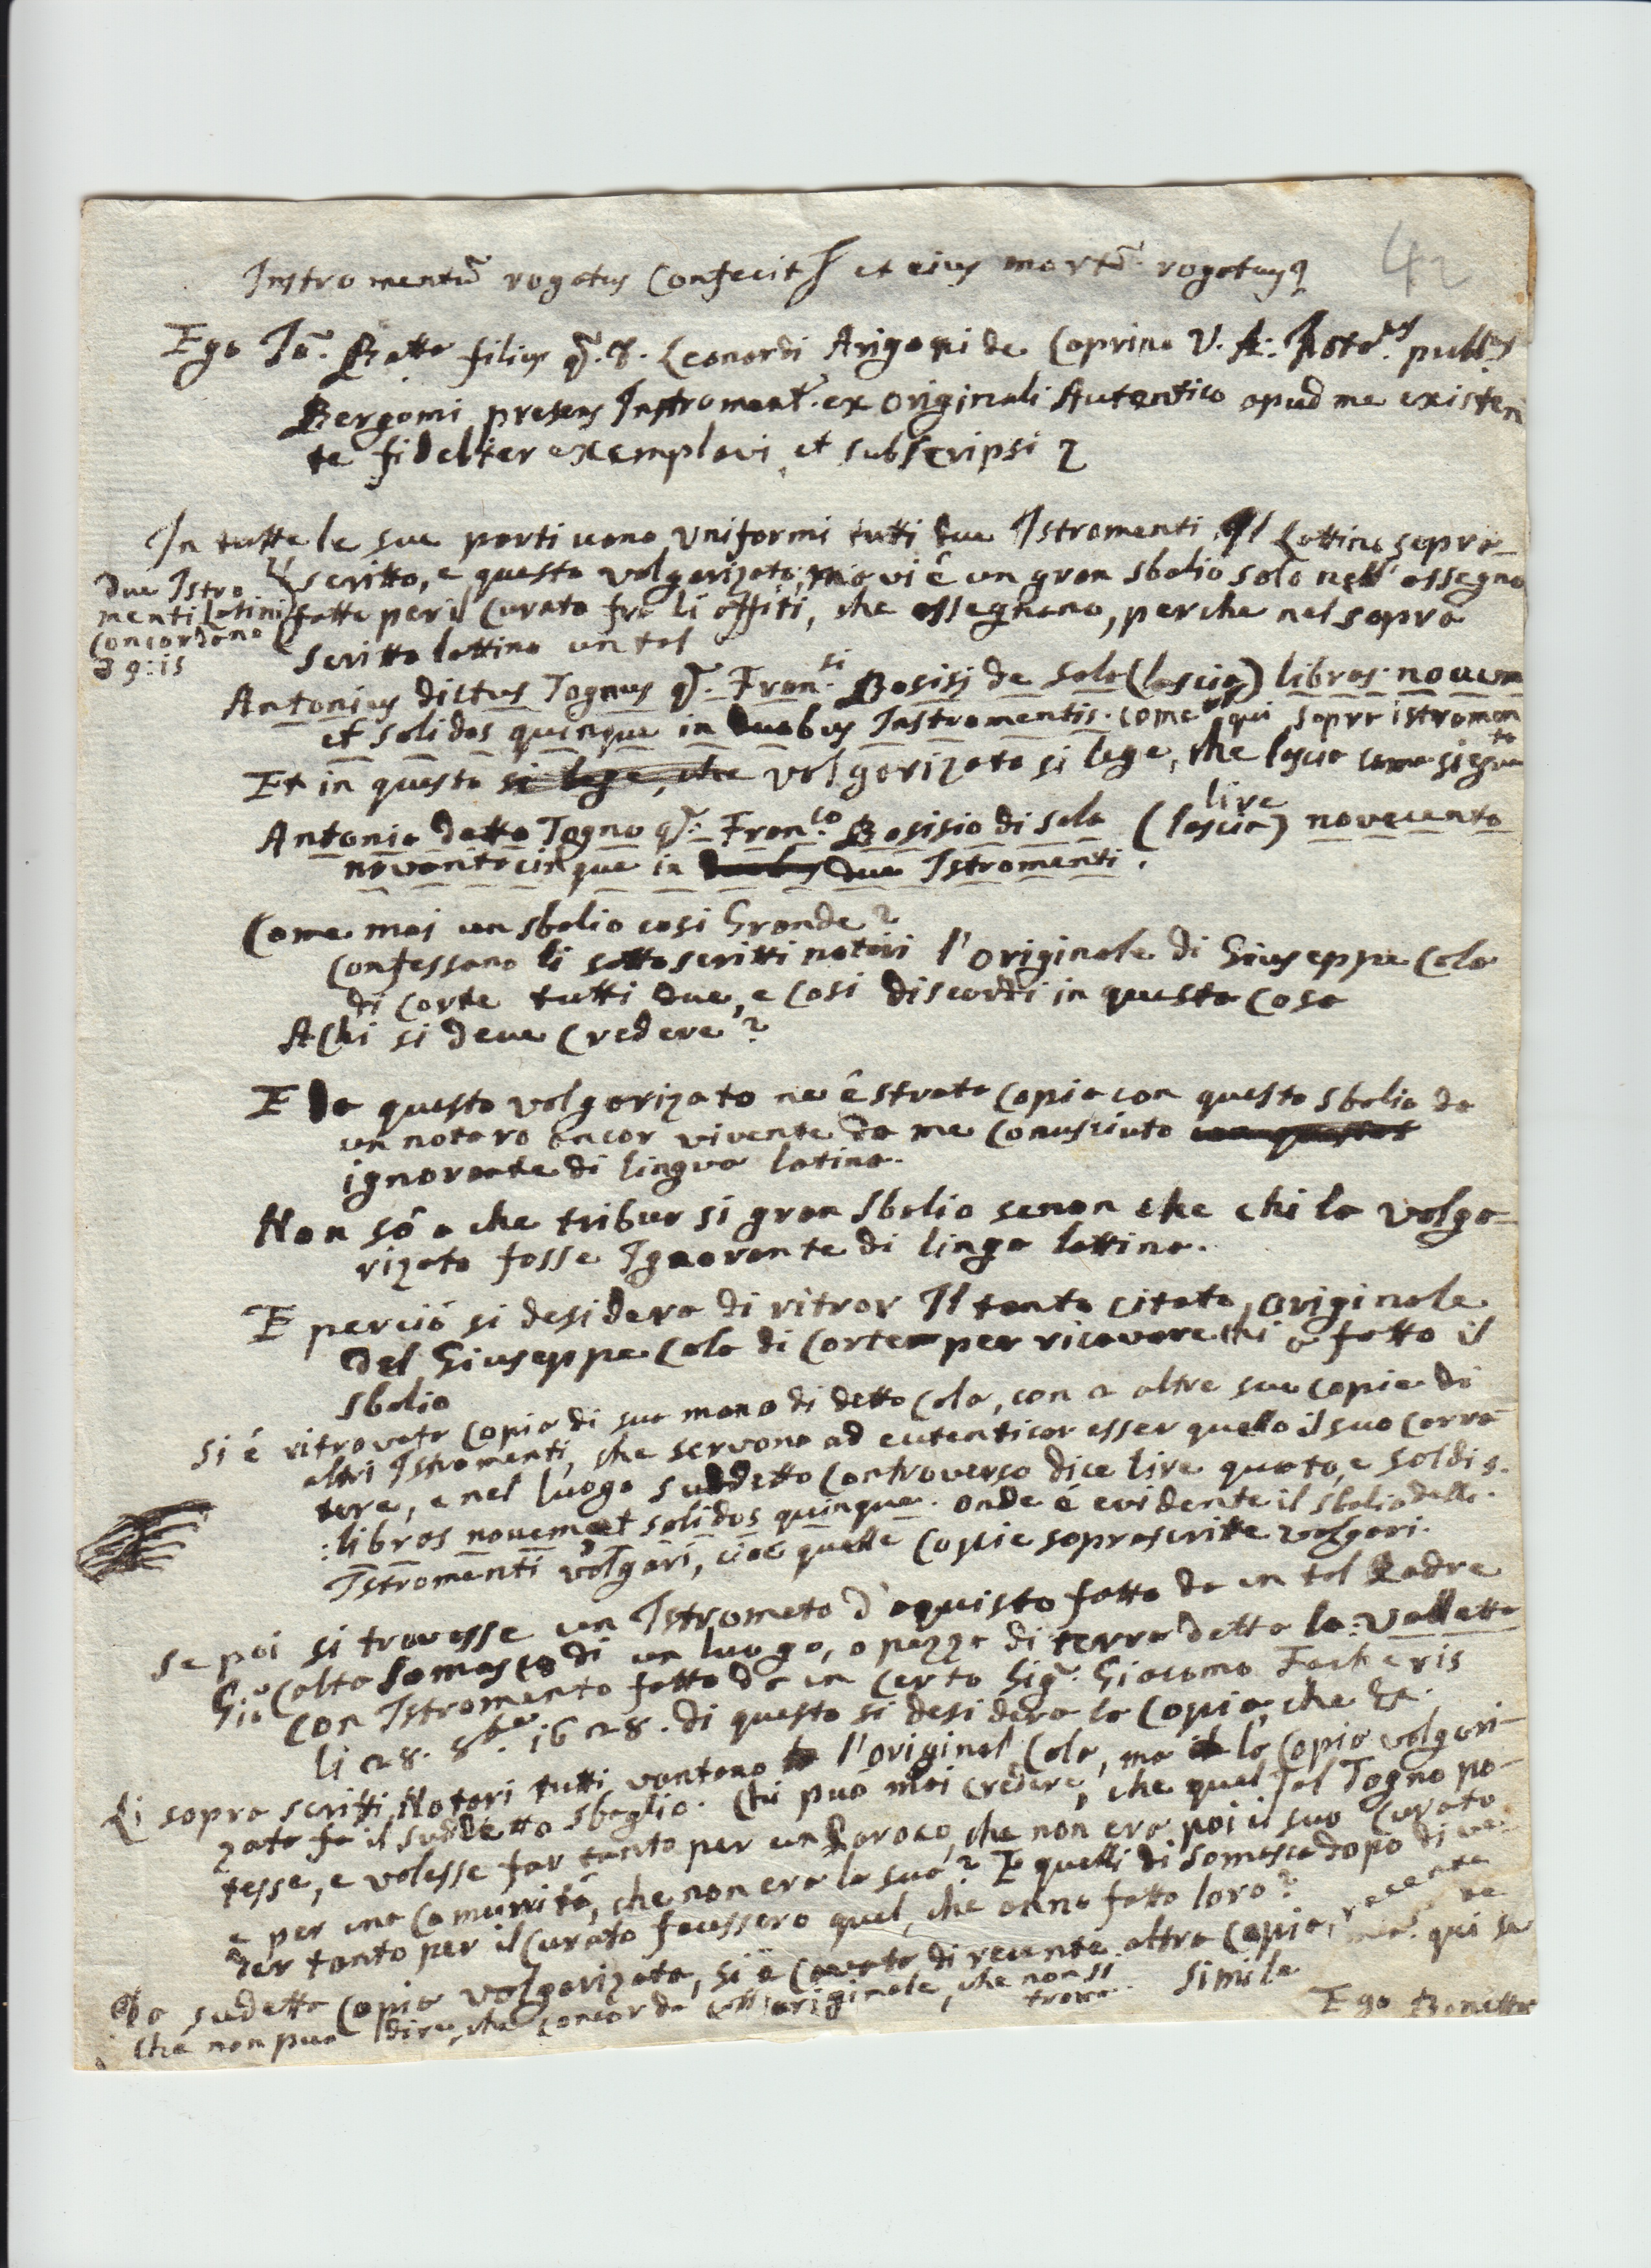 42
Instromentũ rogatus Confecit et eius mortũ rogatus
Ego Jõ. Batta filius q. Leonardi Arigoni de Caprino V. A. Not. pub.us
Bergomi presens Instroment. ex originali Autentico apud me existen
te fideliter exemplavi, et subscripsi
In tutte le sue parti vano uniformi tutti due Istromenti, Il Lattino sopra-
scritto, e questo volgarizato, mà vi é un gran sbalio solo nell'assegno
fatto per il Curato fra li affiti, che assegnano, perche nel sopra
scritto lattino un tal
due Istro
menti Latini
Concordano
Antonius dictus Tognus q. Fran.si Basisj de Sala (lascia) libras novem
et solidos quinque in duabus Instromentis. come qui sopra istromen
to
Et in questo si lege, che volgarizato si lege, che lascia come siegue
Antonio detto Togno q. Fran.co Basisio di Sala (lascia) lire novecento
novantacinque in duabus due Istromenti.
Come mai un sbalio cosi Grande?
Confessano li sottoscritti notari l'originale di Giuseppe Cola
di Corte tutti due, e cosi discordi in questa cosa
A Chi si deve Credere?
E da questo volgarizato ne é strata copia con questo sbalio da
un notaro ancor vivente da me conusciuto
ignorante di lingua latina.
Non sò a che tribuir si gran sbalio senon che chi la volga-
rizato fosse Ignorante di linga lattina.
E perció si desidera di ritrovar Il tanto citato, originale
del Giuseppe Cola di Corte per ricavare chi a fatto il
sbalio
Si é ritrovata copia di sua mano di detto Cola, con 2 altre sue copie di
altri Istromenti, che servono ad autenticar esser quello il suo carra
tere, e nel luogo suddetto Controverso dice lire e soldi 5.
:libras novem, et solidos quinque. onde é evidente il sbalio delli.
Istromenti volgari, cioé quelle copie soprascritte volgari.
Se poi si trovasse un Istrometo d'aquisto fatto da un tal Padre
Gio Calta Somasco di un luogo, o pezza di terra detta la Valletta
con Istromento fatto da un certo Sig. Giacomo Facheris
li 28. 8bre 1628. di questo si desidera la Copia, che &.
Li sopra scritti Notari tutti vantano l'original Cola, ma la Copia volgari-
zata fa il suddetto sbaglio. Chi puó mai credere, che quel Tal Togno po-
tesse, e volesse far tanto per un Paroco, che non era poi il suo Curato
e per una Comunità, che non era la sua? E quelli di Somasca dopo di ve
der tanto per il Curato facessero quel, che anno fatto loro?
Da sudetta Copia volgarizata, si á cavata di recente altra Copia, recente
Che non puó dire, che concorda coll'originale, che non si trova. Simile qui
Ego Bonetto